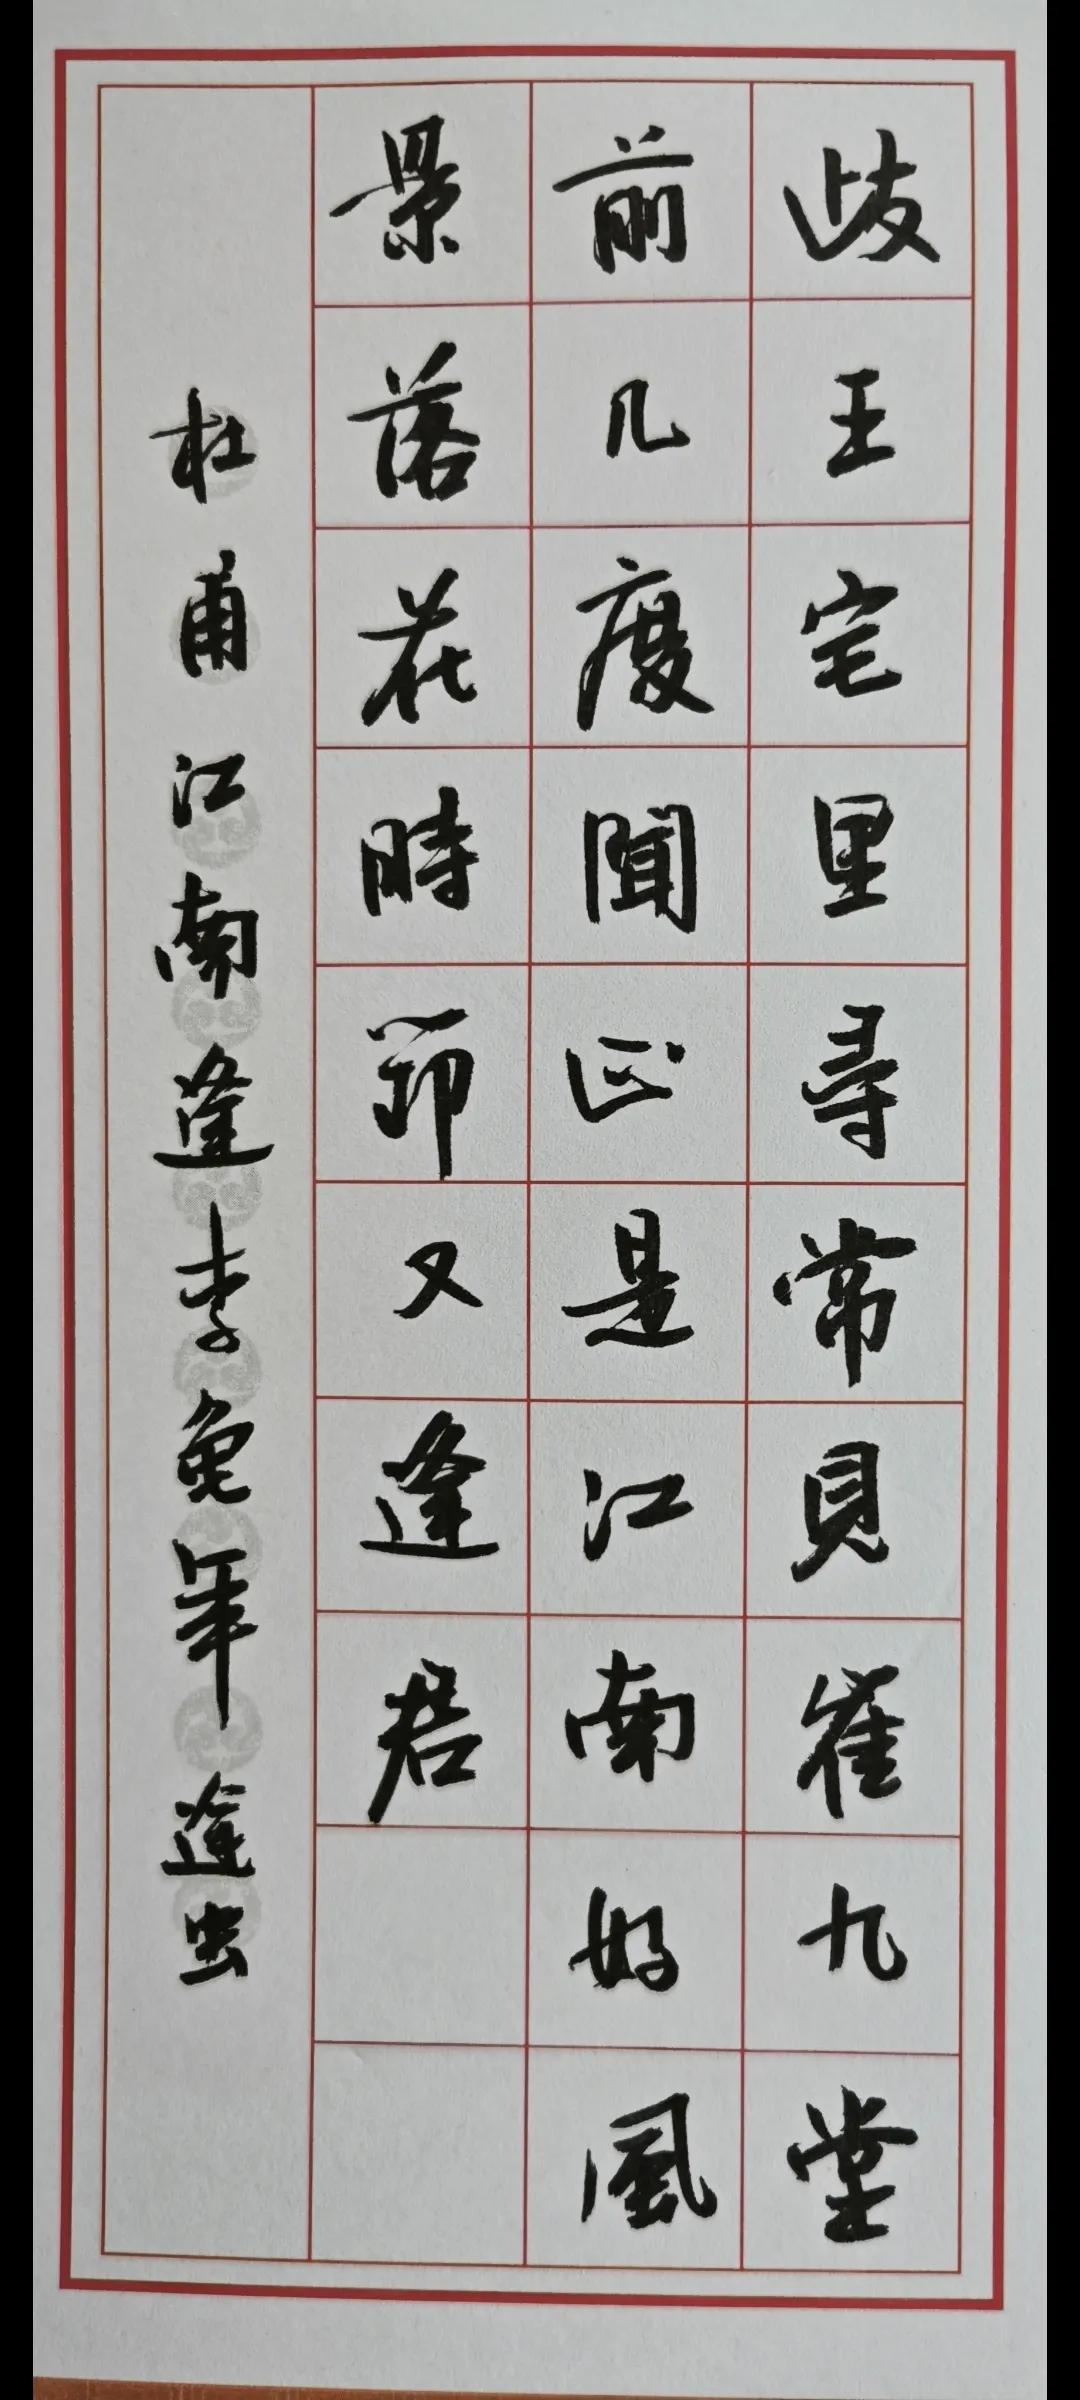 歧王宅里尋常見崔九堂
前几度聞正是江南好風
景落花時節又逢君
杜甫江南逢李龜年逢虫